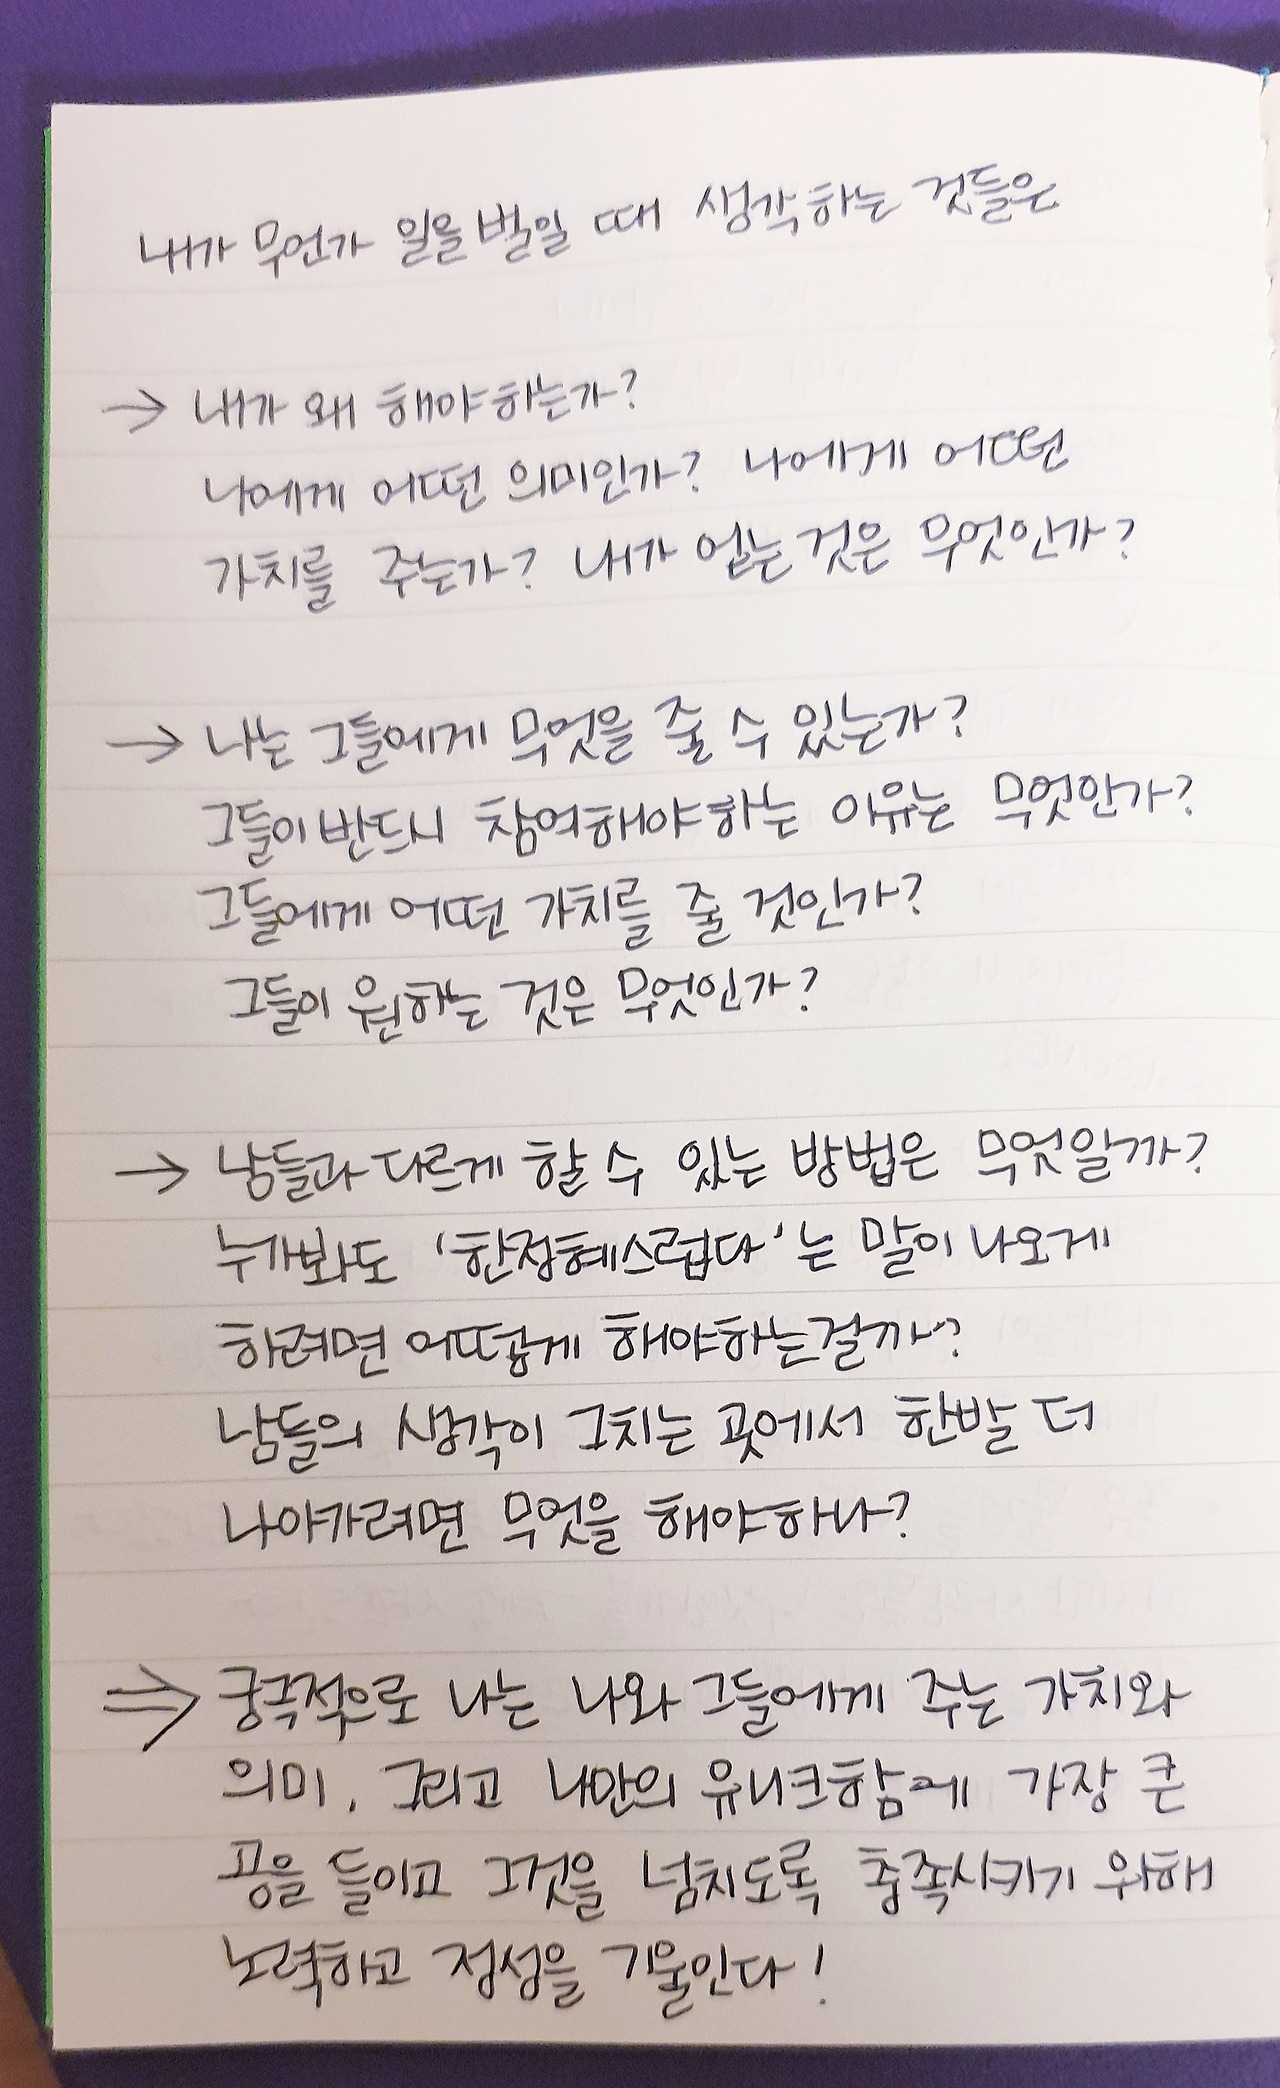 내가 무언가 일을 벌일 때 생각하는 것들은
→ 내가 왜 해야하는가?
나에게 어떤 의미인가? 나에게 어떤
가치를 주는가? 내가 얻는 것은 무엇인가?
→ 나는 그들에게 무엇을 줄 수 있는가?
그들이 반드시 참여해야하는 이유는 무엇인가?
그들에게 어떤 가치를 줄 것인가?
그들이 원하는 것은 무엇인가?
→ 남들과 다르게 할 수 있는 방법은 무엇일까?
누가봐도 '한정혜스럽다'는 말이 나오게
하려면 어떻게 해야하는걸까?
남들의 생각이 그치는 곳에서 한발 더
나아가려면 무엇을 해야하나?
⇒ 궁극적으로 나는 나와 그들에게 주는 가치와
의미, 그리고 나만의 유니크함에 가장 큰
공을 들이고 그것을 넘치도록 충족시키기 위해
노력하고 정성을 기울인다!